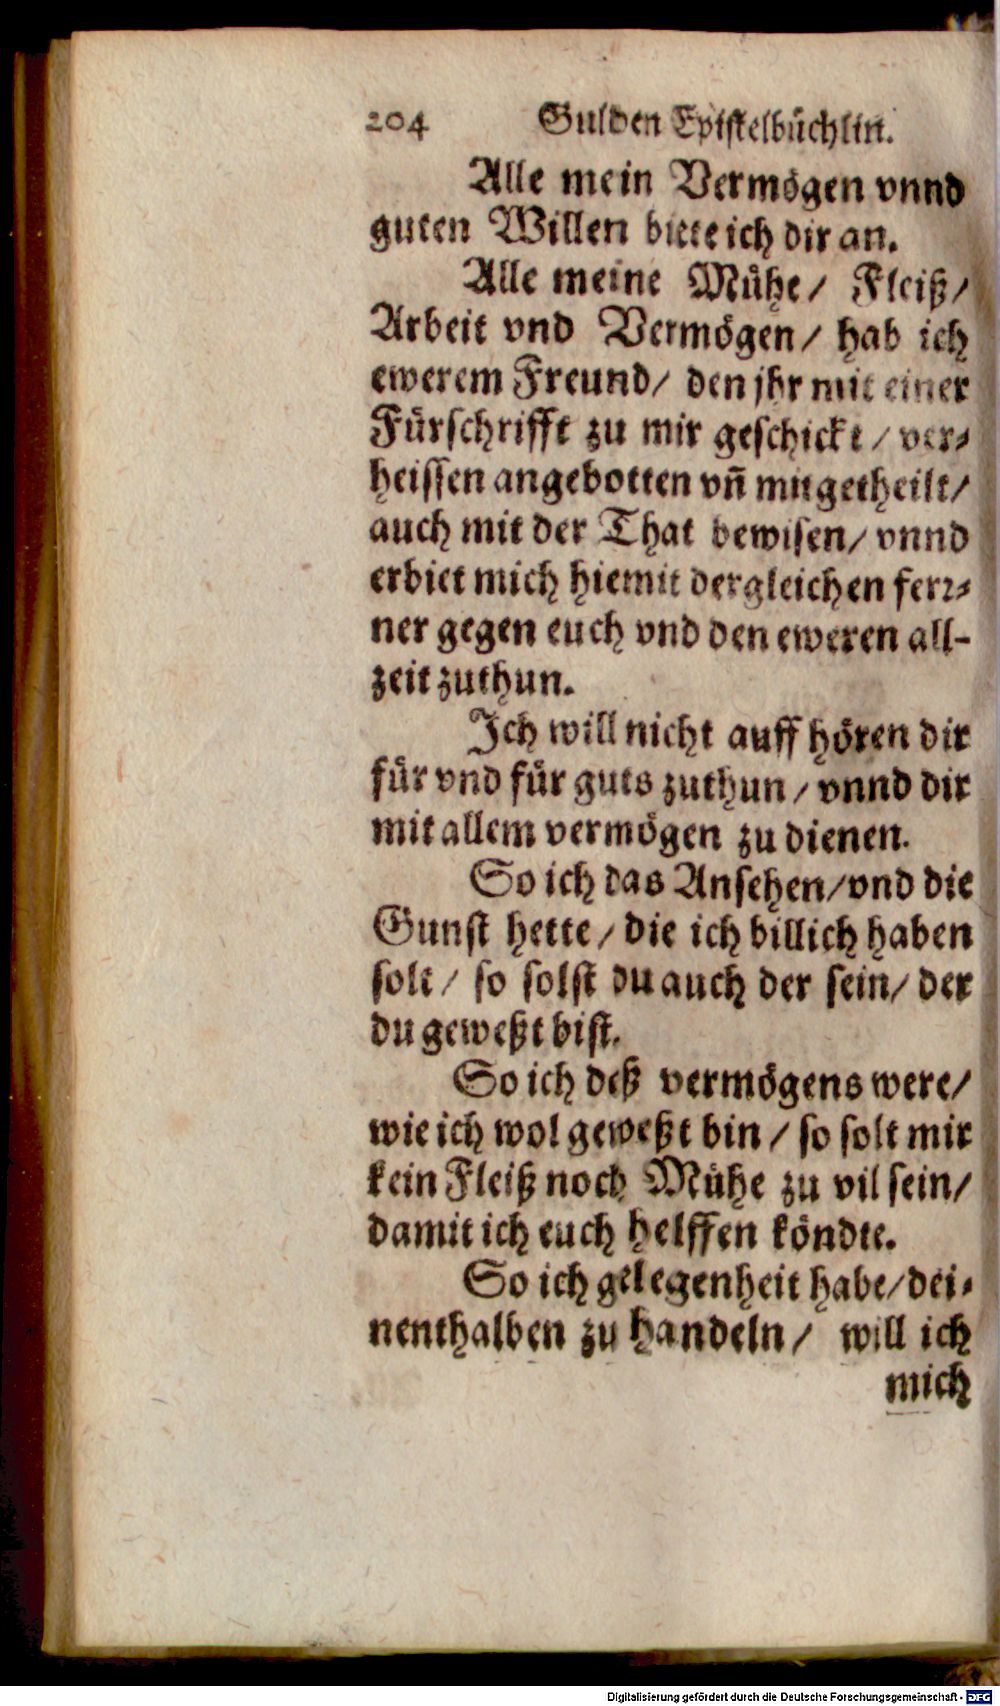 204 Gulden Epistelbüchlin.
Alle mein Vermögen vnnd
guten Willen biete ich dir an.
Alle meine Mühe/ Fleiß/
Arbeit vnd Vermögen/ hab ich
ewerem Freund/ den jhr mit einer
Fürschrifft zu mir geschickt/ ver⸗
heissen angebotten vñ mitgetheilt/
auch mit der That bewisen/ vnnd
erbiet mich hiemit dergleichen ferꝛ⸗
ner gegen euch vnd den eweren all-
zeit zuthun.
Ich will nicht auff hören dir
für vnd für guts zuthun/ vnnd dir
mit allem vermögen zu dienen.
So ich das Ansehen/ vnd die
Gunst hette/ die ich billich haben
solt/ so solst du auch der sein/ der
du geweßt bist.
So ich deß vermögens were/
wie ich wol geweßt bin/ so solt mir
kein Fleiß noch Mühe zu vil sein/
damit ich euch helffen köndte.
So ich gelegenheit habe/ dei⸗
nenthalben zu handeln/ will ich
mich
Digitalisierung gefördert durch die Deutsche Forschungsgemeinschaft - DFG